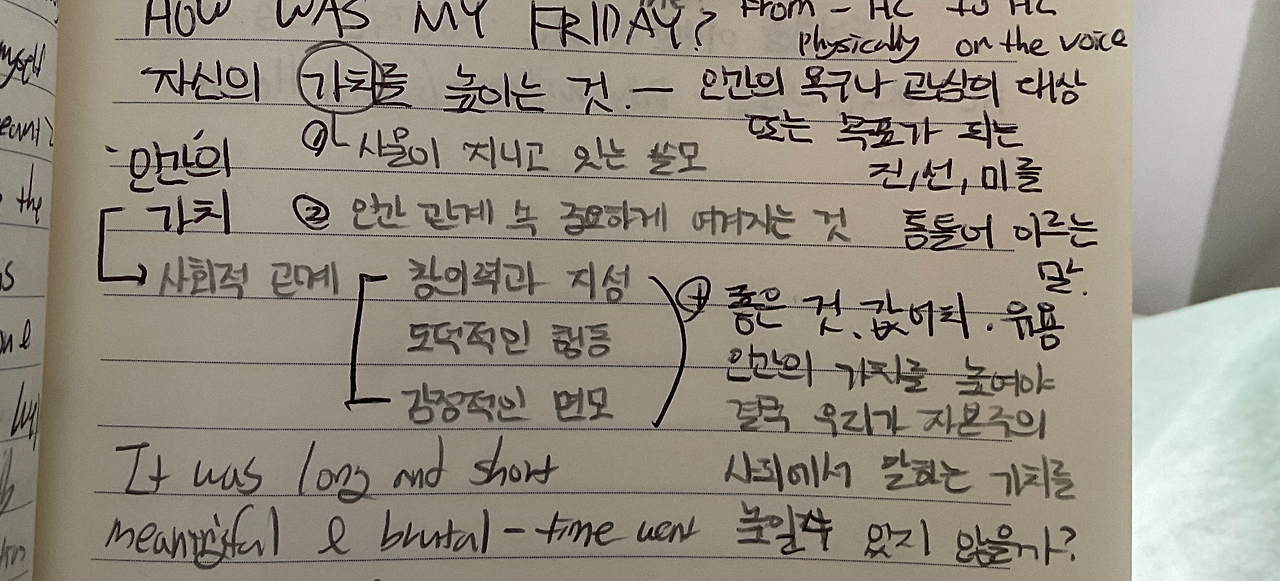 HOW WAS MY FRIDAY? From - AC to AC
physically on the voice
자신의 가치를 높이는 것. — 인간의 욕구나 관심의 대상
또는 목표가 되는
진, 선, 미를
통틀어 이르는
말.
인간의
가치
① 사물이 지니고 있는 쓸모
② 인간 관계 속 중요하게 여겨지는 것
사회적 관계
창의력과 지성
도덕적인 행동
감정적인 면모
+ 좋은 것. 값어치. 유용
인간의 가치를 높여야
결국 우리가 자본주의
사회에서 말하는 가치를
높일 수 있지 않을까?
It was long and short
meaningful & brutal - time went
myself
the